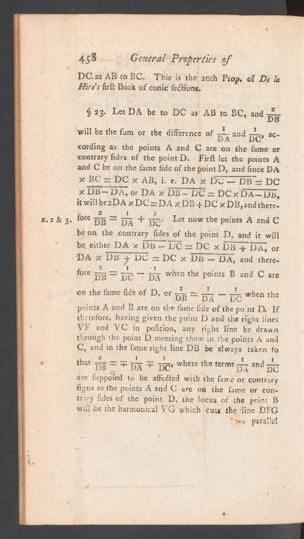 458 General Properties of
DC as AB to BC. This is the 20th Prop. of De la
Hire's first Book of conic sections.
§ 23. Let DA be to DC as AB to BC, and 2/DB
will be the sum or the difference of 1/DA and 1/DC, ac-
cording as the points A and C are on the same or
contrary sides of the point D. First let the points A
and C be on the same side of the point D, and since DA
× BC = DC × AB, i. e. DA × DC — DB = DC
× DB—DA, or DA × DB — DC = DC × DA—DB,
it will be 2DA × DC = DA × DB + DC × DB, and there-
n. 2 & 3. fore 2/DB = 1/DA + 1/DC. Let now the points A and C
be on the contrary sides of the point D, and it will
be either DA × DB — DC = DC × DB + DA, or
DA × DB + DC = DC × DB — DA, and there-
fore 2/DB = 1/DC — 1/DA when the points B and C are
on the same side of D, or 2/DB = 1/DA — 1/DC when the
points A and B are on the same side of the point D. If
therefore, having given the point D and the right lines
VF and VC in position, any right line be drawn
through the point D meeting them in the points A and
C, and in the same right line DB be always taken so
that 2/DB = ∓ 1/DA ∓ 1/DC, where the terms 1/DA and 1/DC
are supposed to be affected with the same or contrary
signs as the points A and C are on the same or con-
trary sides of the point D, the locus of the point B
will be the harmonical VG which cuts the line DFG
parallel